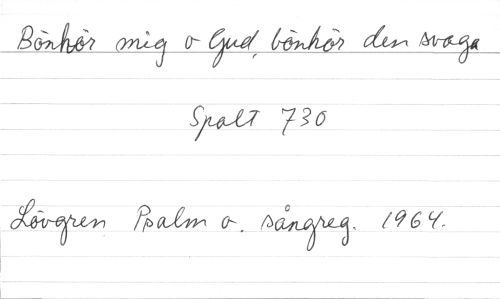 Bönhör mig o Gud, bönhör den svaga
Spalt 730
Lövgren Psalm o. sångreg. 1964.